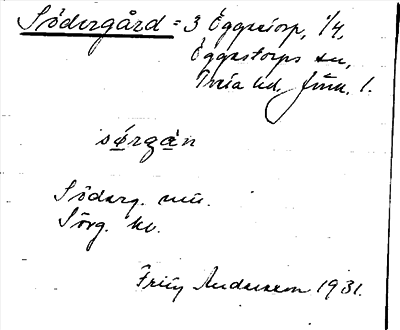 Södergård = 3 Eggestorp, 1/4,
Eggestorps sn,
Tveta hd, Jönk. l.
sörgån
Söderg. mu.
Sörg. kv.
Fritz Andersson 1931.